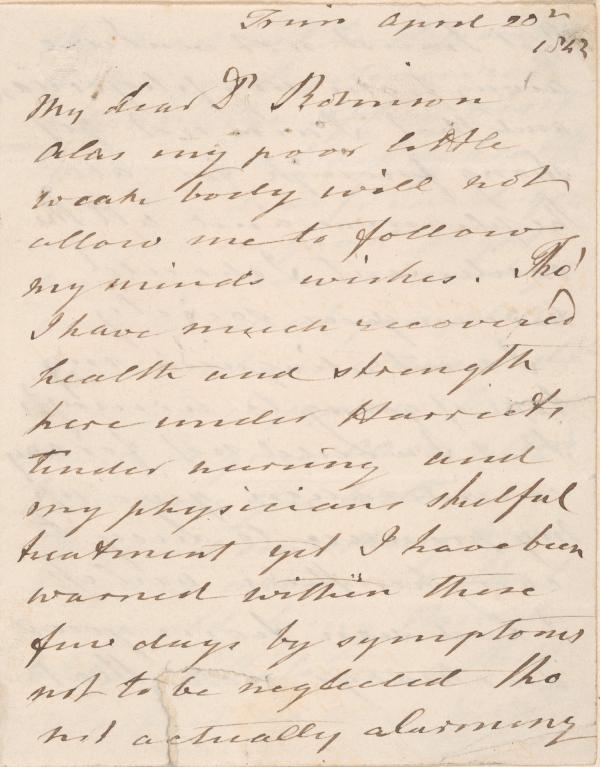 Trim April 20th
1843
My dear Dr Robinson
Alas my poor little
weak body will not
allow me to follow
my minds wishes. Tho'
I have much recovered
health and strength
here under Harriets
tender nursing and
my physicians skilful
treatment yet I have been
warned within these
few days by symptoms
not to be neglected tho
not actually alarming